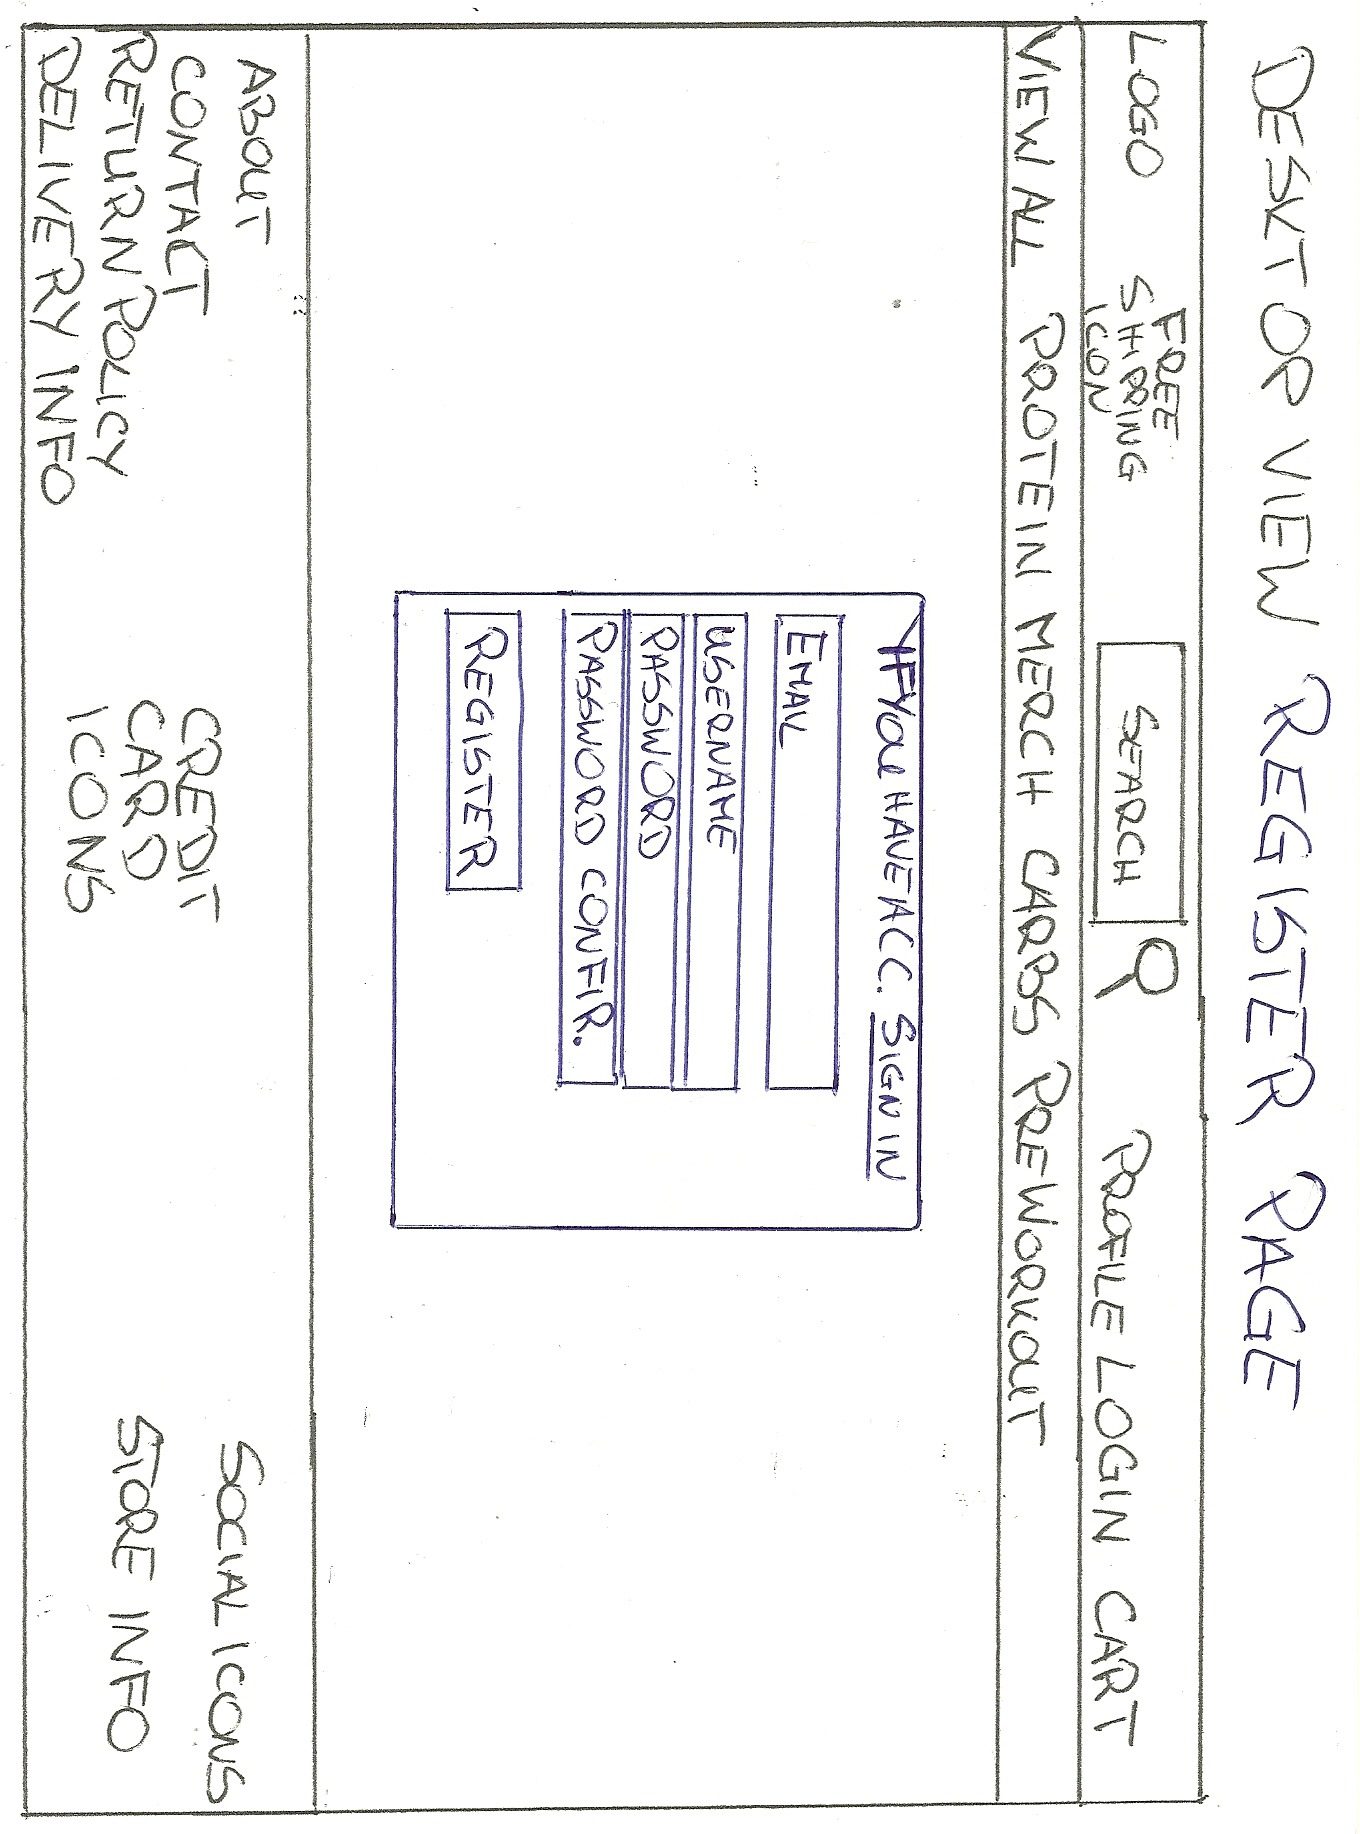 DESKTOP VIEW REGISTER PAGE
LOGO
FREE
SHIPPING
ICON
SEARCH
PROFILE LOGIN CART
VIEW ALL PROTEIN MERCH CARBS PREWORKOUT
IF YOU HAVE ACC. SIGN IN
EMAIL
USERNAME
PASSWORD
PASSWORD CONFIR.
REGISTER
ABOUT
CONTACT
RETURN POLICY
DELIVERY INFO
CREDIT
CARD
ICONS
SOCIAL ICONS
STORE INFO